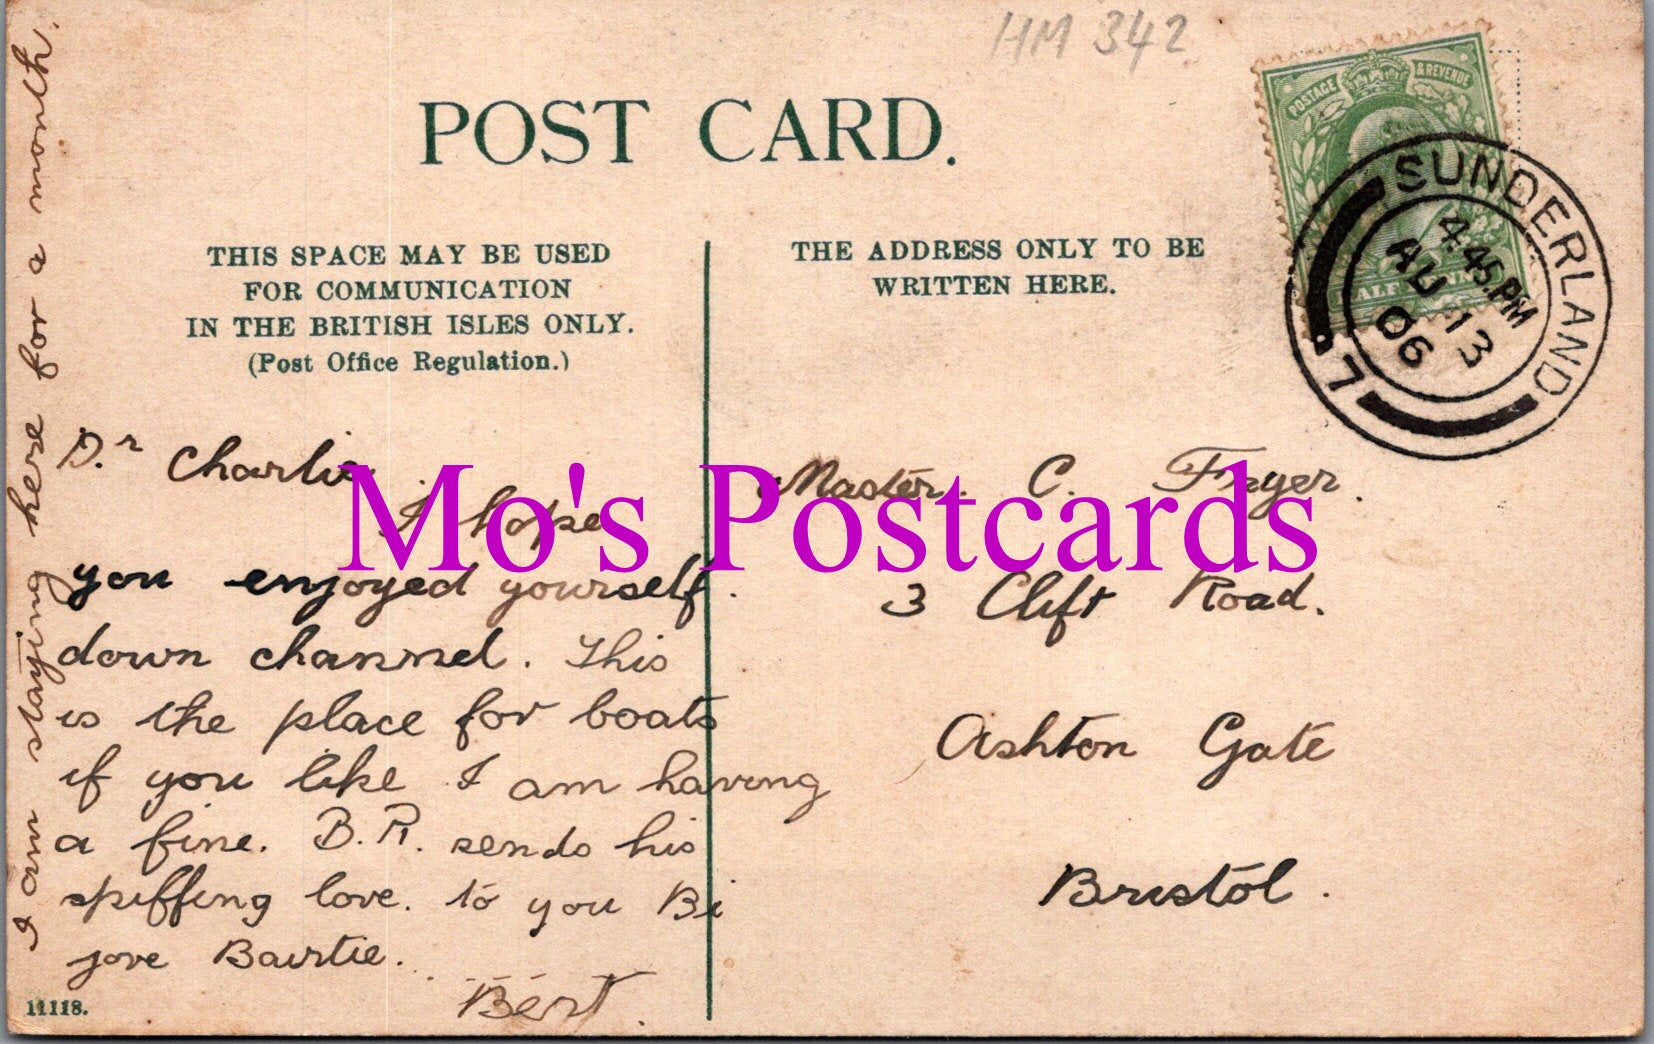 HM 342
POST CARD.
POSTAGE & REVENUE
SUNDERLAND
4.45.PM
AU 13
06
THIS SPACE MAY BE USED
FOR COMMUNICATION
IN THE BRITISH ISLES ONLY.
(Post Office Regulation.)
THE ADDRESS ONLY TO BE
WRITTEN HERE.
Mo's Postcards
Dr Charlie
I hope
you enjoyed yourself.
down channel. This
is the place for boats
if you like I am having
a fine. B.R. sends his
spiffing love. to you Bi
jove Bairtie.
Bert.
I am staying here for a month.
Master. C. Fryer.
3 Clift Road.
Ashton Gate
Bristol.
11118.